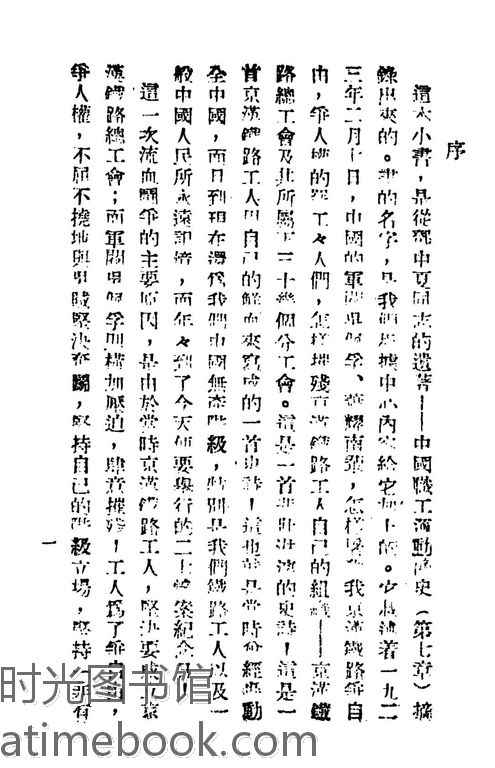 序
這本小書，是從鄧中夏同志的遺著——中國職工運動簡史（第七章）摘
錄出來的。書的名字，是我們根據中心內容給它加上的。它敍述着一九二
三年二月七日，中國的軍閥吳佩孚、蕭耀南輩，怎樣 我京漢鐵路爭自
由，爭人權的 工々人們，怎樣摧殘京漢鐵路工人自己的組織——京漢鐵
路總工會及其所屬 三十幾個分工會。這是一首 的史詩！這是一
首京漢鐵路工人用自己的鮮血來寫成的一首史詩！這也 是當時曾經轟動
全中國，而且到現在還爲我們中國無產階級，特別是我們鐵路工人以及一
般中國人民所永遠記憶，而年々到了今天便要舉行的二七慘案紀念日！
這一次流血鬬爭的主要原因，是由於當時京漢鐵路工人，堅決要成立京
漢鐵路總工會；而軍閥吳佩孚則橫加壓迫，肆意摧殘，工人爲了爭自由，
爭人權，不屈不撓地與吳賊堅決奮鬬，堅持自己的階級立場，堅持 有
一
时光图书馆
atimebook.com